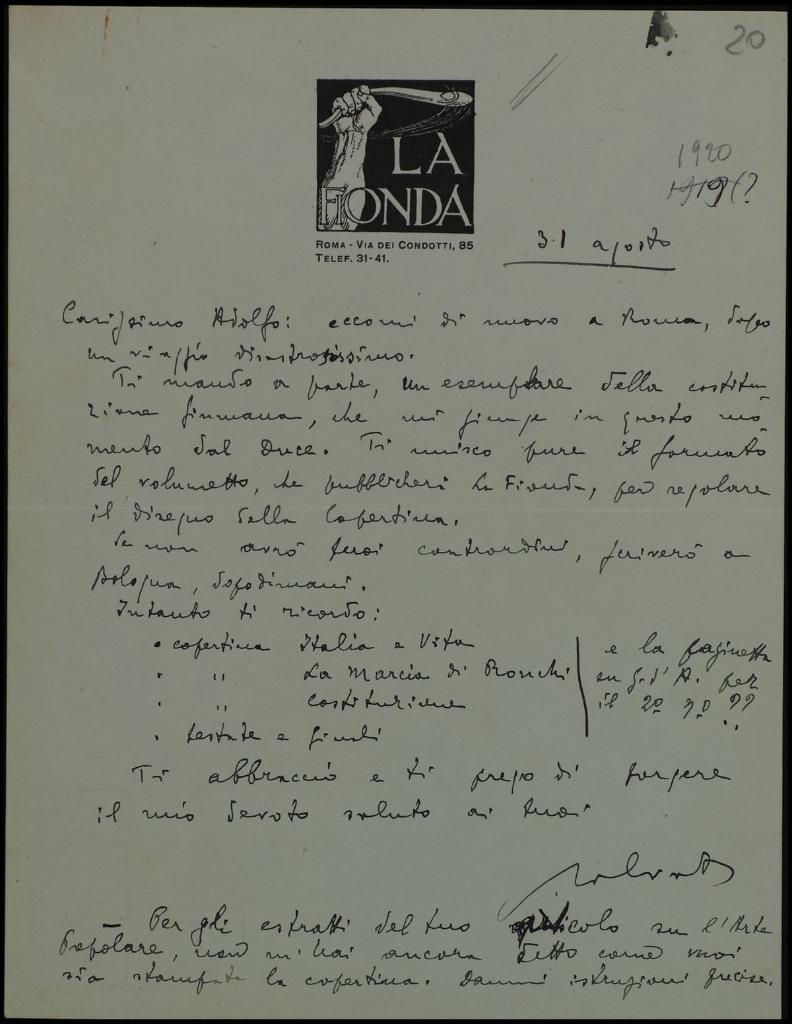 20
LA
FIONDA
ROMA - VIA DEI CONDOTTI, 85
TELEF. 31-41.
1920
1919(?
31 agosto
Carissimo Adolfo: eccomi di nuovo a Roma, dopo
un viaggio disastrosissimo.
Ti mando a parte, un esemplare della costitu
zione fiumana, che mi giunge in questo mo
mento dal Duce. Ti unisco pure il formato
del volumetto, che pubblicherà La Fionda, per regolare
il disegno della copertina.
Se non avrò tuoi contrordini, scriverò a
Bologna, dopodimani.
Intanto ti ricordo:
• copertina Italia e Vita
• " La Marcia di Ronchi
• " costituzione
• testate e finali
e la paginetta
su G. d'A. per
il 2º nº ??
Ti abbraccio e ti prego di porgere
il mio devoto saluto ai tuoi
— Per gli estratti del tuo articolo su l'Arte
Popolare, non m'hai ancora detto come vuoi
sia stampata la copertina. Dammi istruzioni precise.